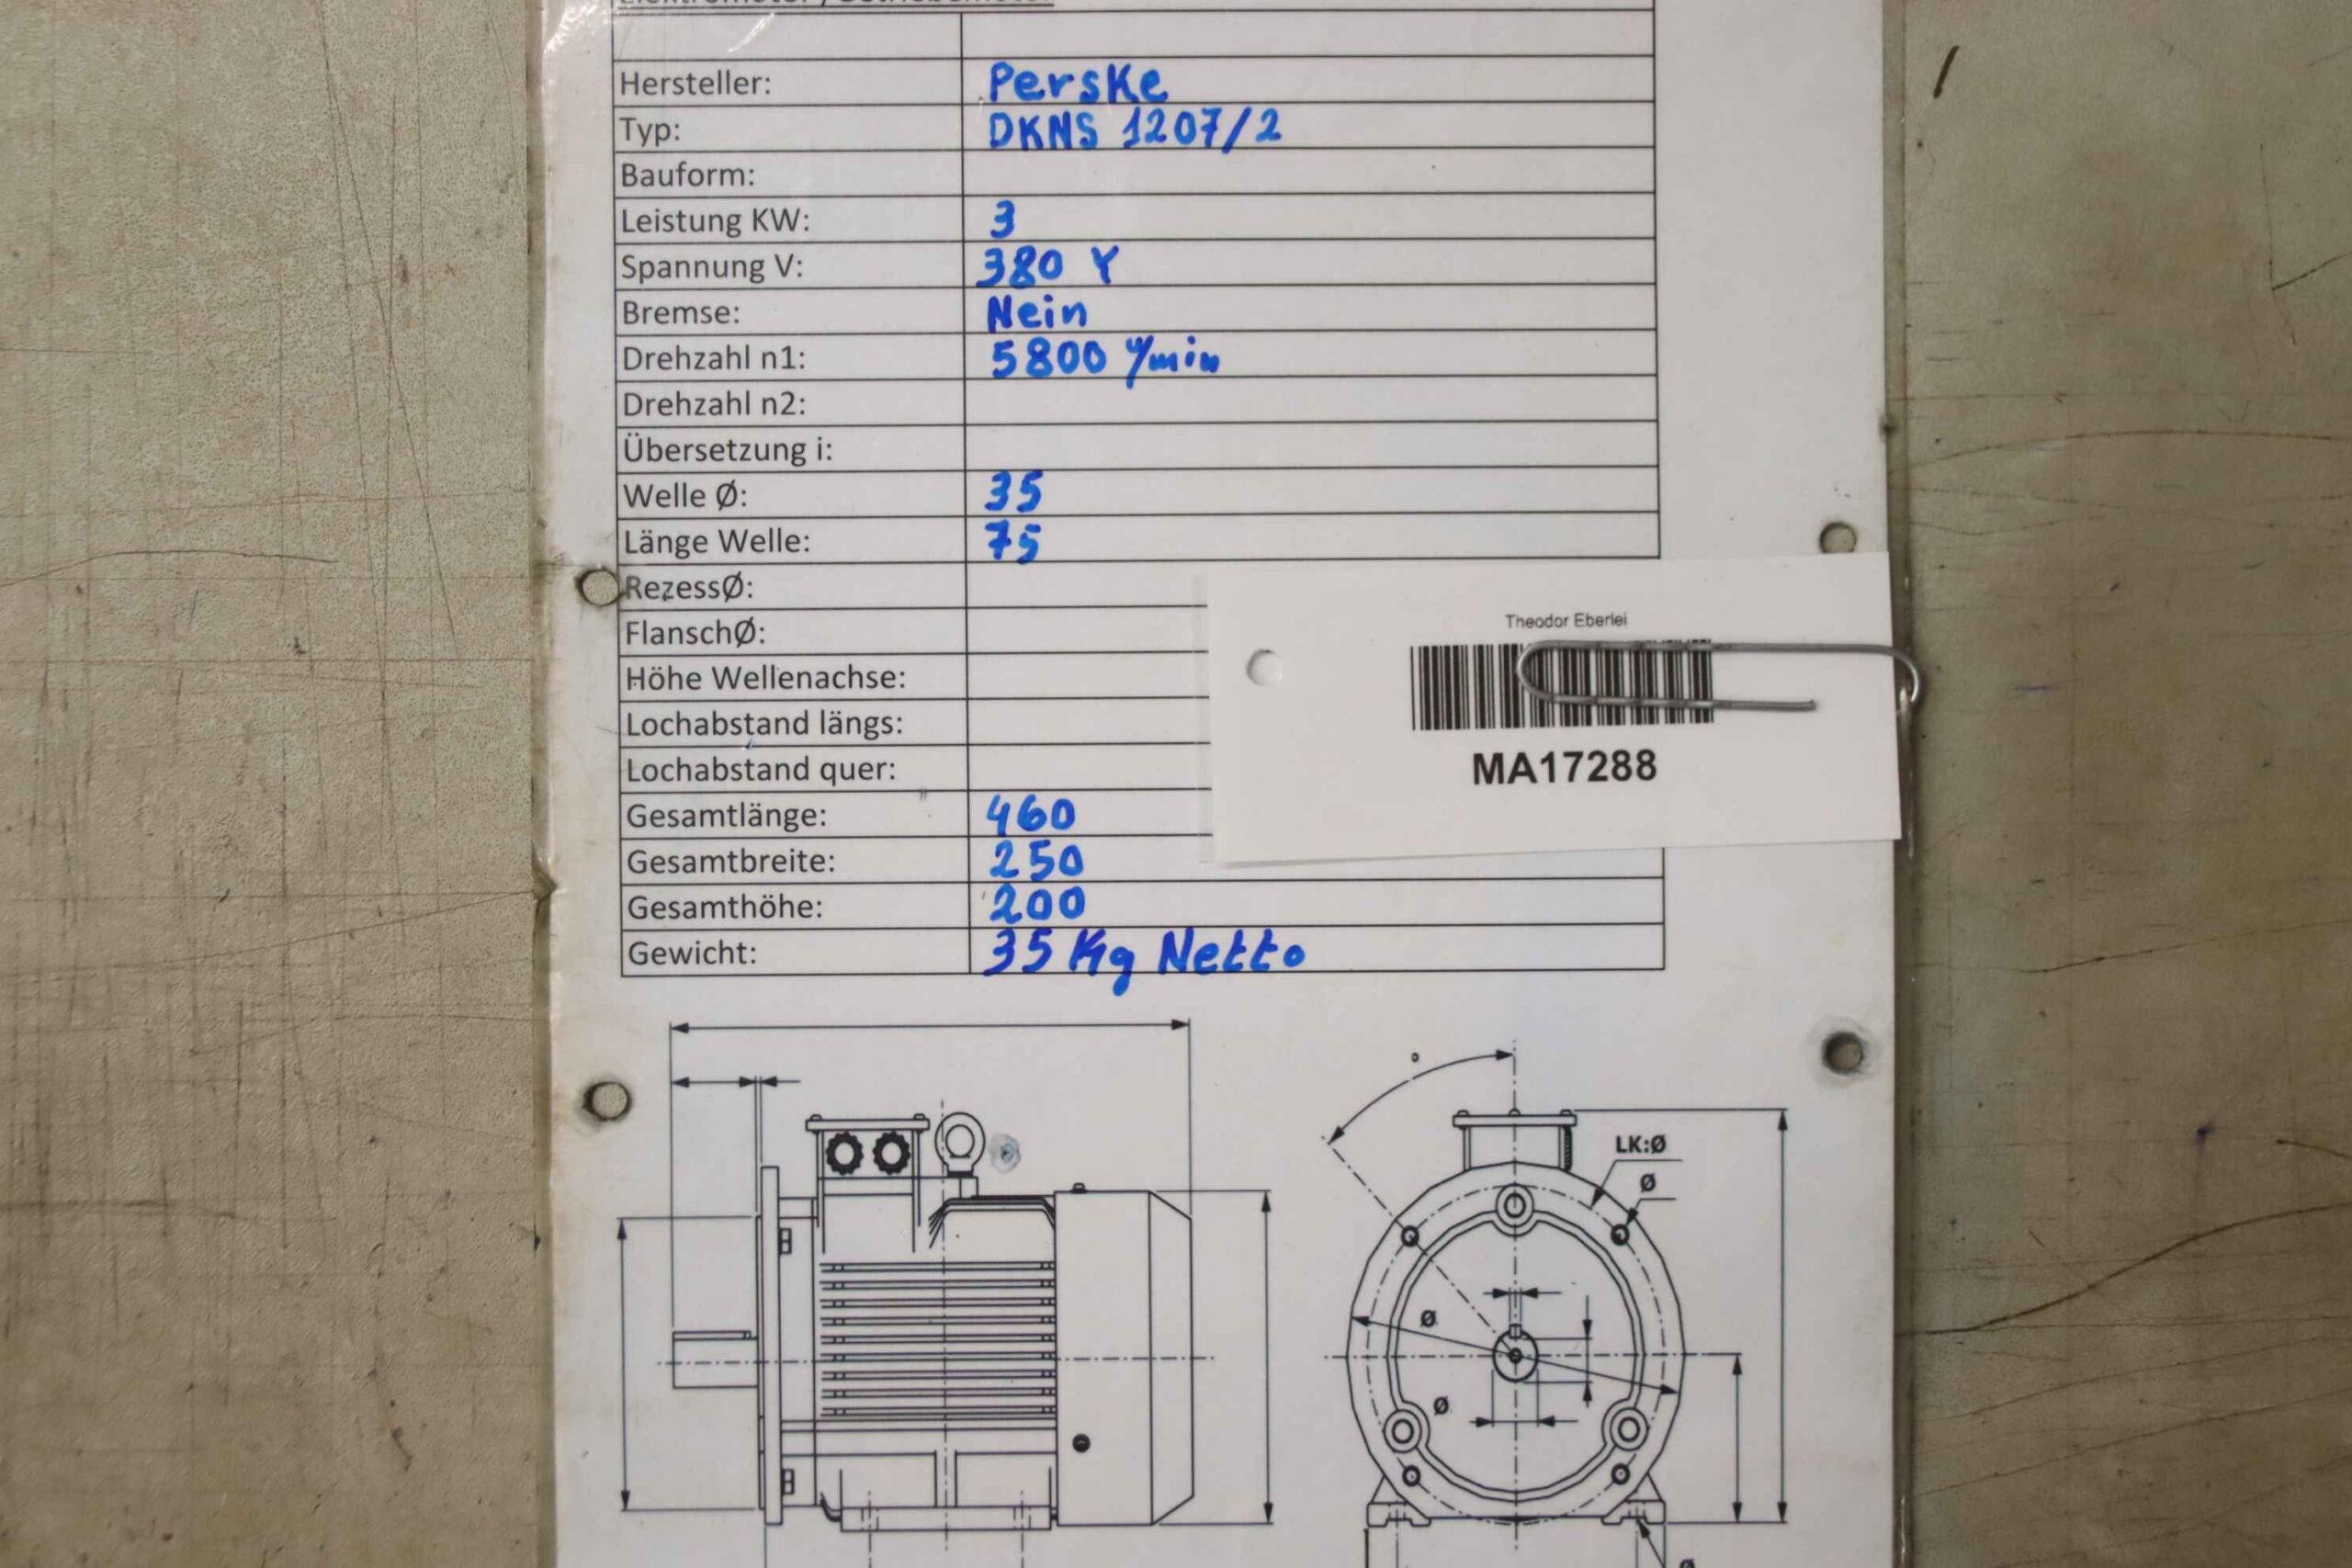 Elektromotor / Getriebemotor
Hersteller: Perske
Typ: DKNS 1207/2
Bauform:
Leistung KW: 3
Spannung V: 380 Y
Bremse: Nein
Drehzahl n1: 5800 1/min
Drehzahl n2:
Übersetzung i:
Welle Ø: 35
Länge Welle: 75
RezessØ:
FlanschØ:
Höhe Wellenachse:
Lochabstand längs:
Lochabstand quer:
Theodor Eberlei
MA17288
Gesamtlänge: 460
Gesamtbreite: 250
Gesamthöhe: 200
Gewicht: 35 Kg Netto
°
LK:Ø
Ø
Ø
Ø
Ø